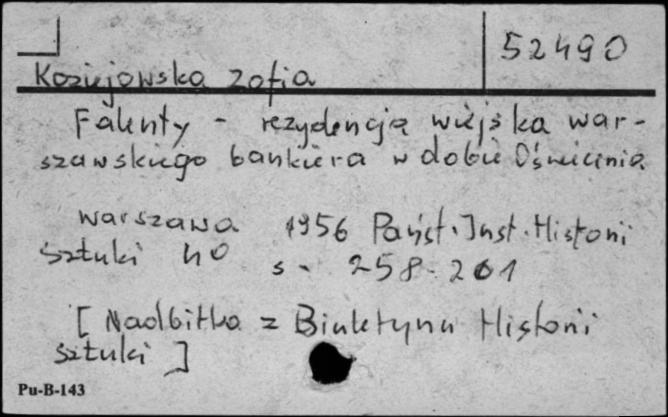 52490
Koziejowska Zofia
Falenty - rezydencja wiejska war-
szawskiego bankiera w dobie Oświecenia
Warszawa 1956 Państ. Inst. Historii
Sztuki 4o s. 258-261
[Nadbitka z Biuletynu Historii
Sztuki]
Pu-B-143